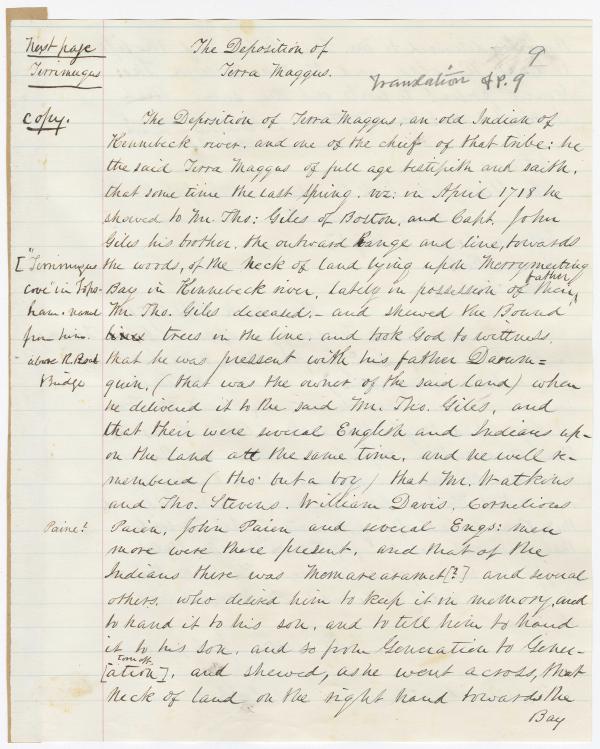 Next page
Terrimugus
The Deposition of
Terra Maggus.
9
Translation of P. 9
Copy.
The Deposition of Terra Maggus, an old Indian of
Kennebeck river, and one of the chief of that tribe: he
the said Terra Maggus of full age testifith and saith,
that some time the last Spring, viz: in April 1718 he
shewed to Mr. Tho: Giles of Boston, and Capt. John
Giles his brother, the outward Range and line, towards
["Terrimugus
cove" in Tops-
ham, named
from him.
above R. Road
Bridge
the woods, of the Neck of land lying upon Merrymeeting
Bay in Kennebeck river, lately in possession of their father,
Mr. Tho. Giles deceased, - and shewed the Bound
trees in the line, and took God to wittness,
that he was pressent with his father Darum=
quin, (that was the owner of the said land) when
he delivered it to the said Mr. Tho. Giles, and
that their were several English and Indians up-
on the land att the same time, and he well re-
membered (tho' but a boy) that Mr. Watkins
and Tho. Stevens, William Davis, Cornelious
Paine?
Paien, John Paien and several Engs: men
more were there present, and that of the
Indians there was [?] and several
others, who desired him to keep it in memory, and
to hand it to his son, and to tell him to hand
it to his son, and so from Generation to Gener-
torn off.
[ation], and shewed, as he went across, that
Neck of land on the right hand towards the
Bay